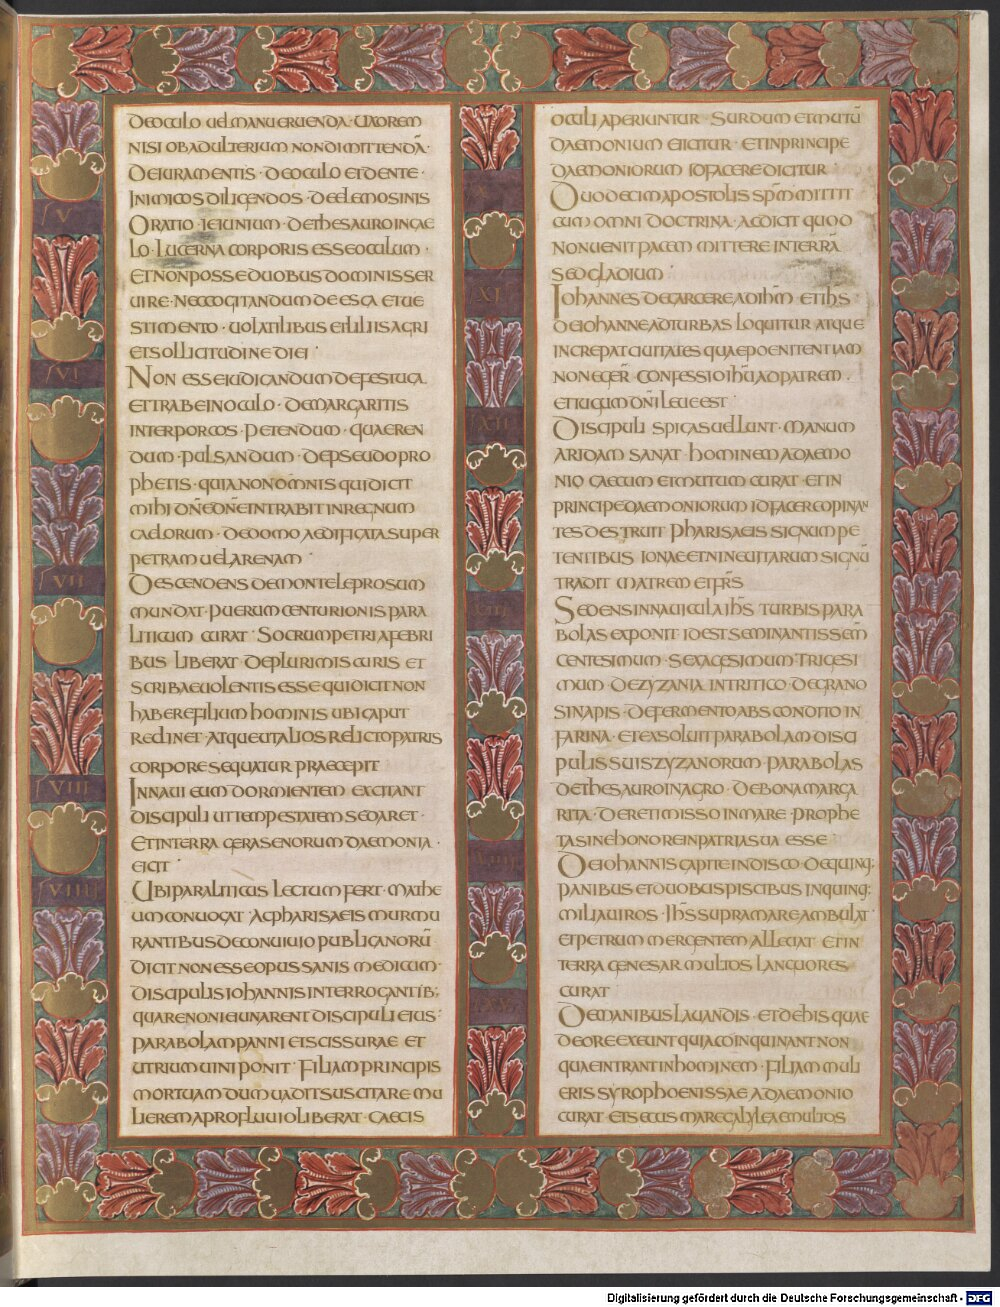 DEOCULO UEL MANU ERUENDA · UXOREM
NISI OB ADULTERIUM NON DIMITTENDĀ ·
DE IURAMENTIS · DE OCULO ET DENTE ·
INIMICOS DILIGENDOS · DE ELEMOSINIS
V
ORATIO · IEIUNIUM · DE THESAURO IN CAE
LO · LUCERNA CORPORIS ESSE OCULUM ·
ET NON POSSE DUOBUS DOMINIS SER
UIRE · NEC COGITANDUM DE ESCA ET UE
STIMENTO · UOLATILIBUS ET LILIIS AGRI
ET SOLLICITUDINE DIEI ·
VI
NON ESSE IUDICANDUM DE FESTUCA
ET TRABE IN OCULO · DE MARGARITIS
INTER PORCOS · PETENDUM · QUAEREN
DUM · PULSANDUM · DE PSEUDO PRO
PHETIS · QUIA NON OMNIS QUI DICIT
MIHI DÑE DÑE INTRABIT IN REGNUM
CAELORUM · DE DOMO AEDIFICATA SUPER
PETRAM UEL ARENAM ·
VII
DESCENDENS DE MONTE LEPROSUM
MUNDAT · PUERUM CENTURIONIS PARA
LITICUM CURAT · SOCRUM PETRI A FEBRI
BUS LIBERAT · DE PLURIMIS CURIS ET
SCRIBAE UOLENTIS ESSE QUI DICIT NON
HABERE FILIUM HOMINIS UBI CAPUT
RECLINET · ATQUE UT ALIOS RELICTO PATRIS
CORPORE SEQUATUR PRAECEPIT
VIII
IN NAUI EUM DORMIENTEM EXCITANT
DISCIPULI UT TEMPESTATEM SEDARET ·
ET IN TERRA GERASENORUM DAEMONIA ·
EICIT ·
VIIII
UBI PARALITICUS LECTUM FERT · MATHE
UM CONUOCAT · AC PHARISAEIS MURMU
RANTIBUS DE CONUIUIO PUBLICANORŪ
DICIT NON ESSE OPUS SANIS MEDICUM ·
DISCIPULIS IOHANNIS INTERROGANTIB;
QUARE NON IEIUNARENT DISCIPULI EIUS ·
PARABOLAM PANNI EI SCISSURAE ET
UTRIUM UINI PONIT · FILIAM PRINCIPIS
MORTUAM DUM UADIT SUSCITARE MU
LIEREM A PROFLUUIO LIBERAT · CAECIS
OCULI APERIUNTUR · SURDUM ET MUTŪ
DAEMONIUM EIICITUR · ET IN PRINCIPE
DAEMONIORUM ID FACERE DICITUR ·
X
DUODECIM APOSTOLIS SPM̄ MITTIT
CUM OMNI DOCTRINA · AC DICIT QUOD
NON UENIT PACEM MITTERE IN TERRĀ
SED GLADIUM ·
XI
IOHANNES DE CARCERE AD IHM̄ ET IHS̄
DE IOHANNE AD TURBAS LOQUITUR ATQUE
INCREPAT CIUITATES QUAE POENITENTIAM
NON EGER̄ CONFESSIO IHŪ AD PATREM ·
ET IUGUM DÑI LEUE EST ·
XII
DISCIPULI SPICAS UELLUNT · MANUM
ARIDAM SANAT · HOMINEM A DAEMO
NIO CAECUM ET MUTUM CURAT · ET IN
PRINCIPE DAEMONIORUM ID FACERE OPINAN
TES DESTRUIT PHARISAEIS SIGNUM PE
TENTIBUS IONAE ET NINEUITARUM SIGNŪ
TRADIT MATREM ET FRS̄
XIII
SEDENS IN NAUICULA IHS̄ TURBIS PARA
BOLAS EXPONIT ID EST SEMINANTIS SEM̄
CENTESIMUM · SEXAGESIMUM TRIGESI
MUM DE ZYZANIA IN TRITICO DE GRANO
SINAPIS · DE FERMENTO ABSCONDITO IN
FARINA · ET EXSOLUIT PARABOLAM DISCI
PULIS SUIS ZYZANORUM · PARABOLAS
DE THESAURO IN AGRO · DE BONA MARGA
RITA · DE RETI MISSO IN MARE · PROPHE
TA SINE HONORE IN PATRIA SUA ESSE ·
XIIII
DE IOHANNIS CAPITE IN DISCO · DE QUINQ;
PANIBUS ET DUOBUS PISCIBUS IN QUINQ;
MILIA UIROS · IHS̄ SUPRA MARE AMBULAT ·
ET PETRUM MERGENTEM ALLEUAT · ET IN
TERRA GENESAR MULTOS LANGUORES
CURAT
XV
DE MANIBUS LAUANDIS · ET DE HIS QUAE
DE ORE EXEUNT QUIA COINQUINANT NON
QUAE INTRANT IN HOMINEM · FILIAM MULI
ERIS SYROPHOENISSAE A DAEMONIO
CURAT · ET SECUS MARE GALYLEAE MULTOS
Digitalisierung gefördert durch die Deutsche Forschungsgemeinschaft - DFG